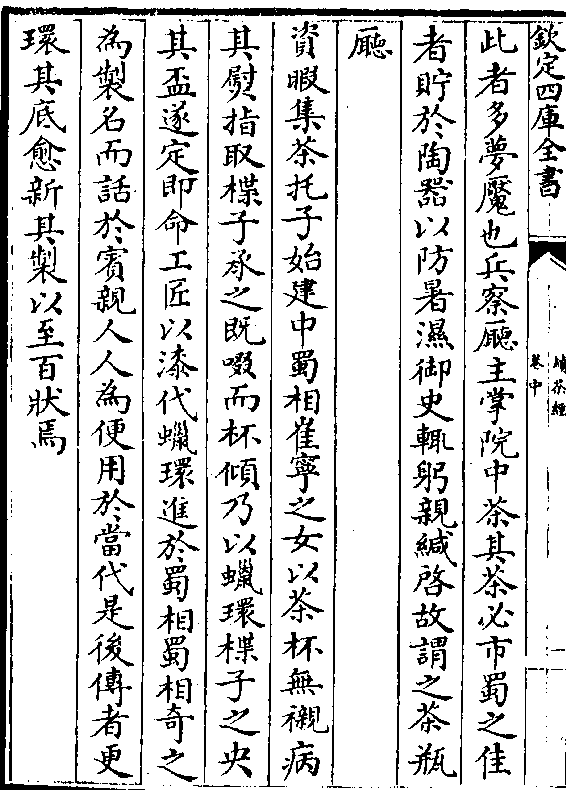 欽定四庫全書
續茶經
卷中
此者多夢魘也兵察廳主掌院中茶其茶必市蜀之佳
者貯於陶器以防暑濕御史輒躬親緘啓故謂之茶瓶
廳
資暇集茶托子始建中蜀相崔寧之女以茶杯無襯病
其熨指取楪子承之既啜而杯傾乃以蠟環楪子之央
其盃遂定即命工匠以漆代蠟環進於蜀相蜀相奇之
為製名而話於賓親人人為便用於當代是後傳者更
環其底愈新其製以至百狀焉